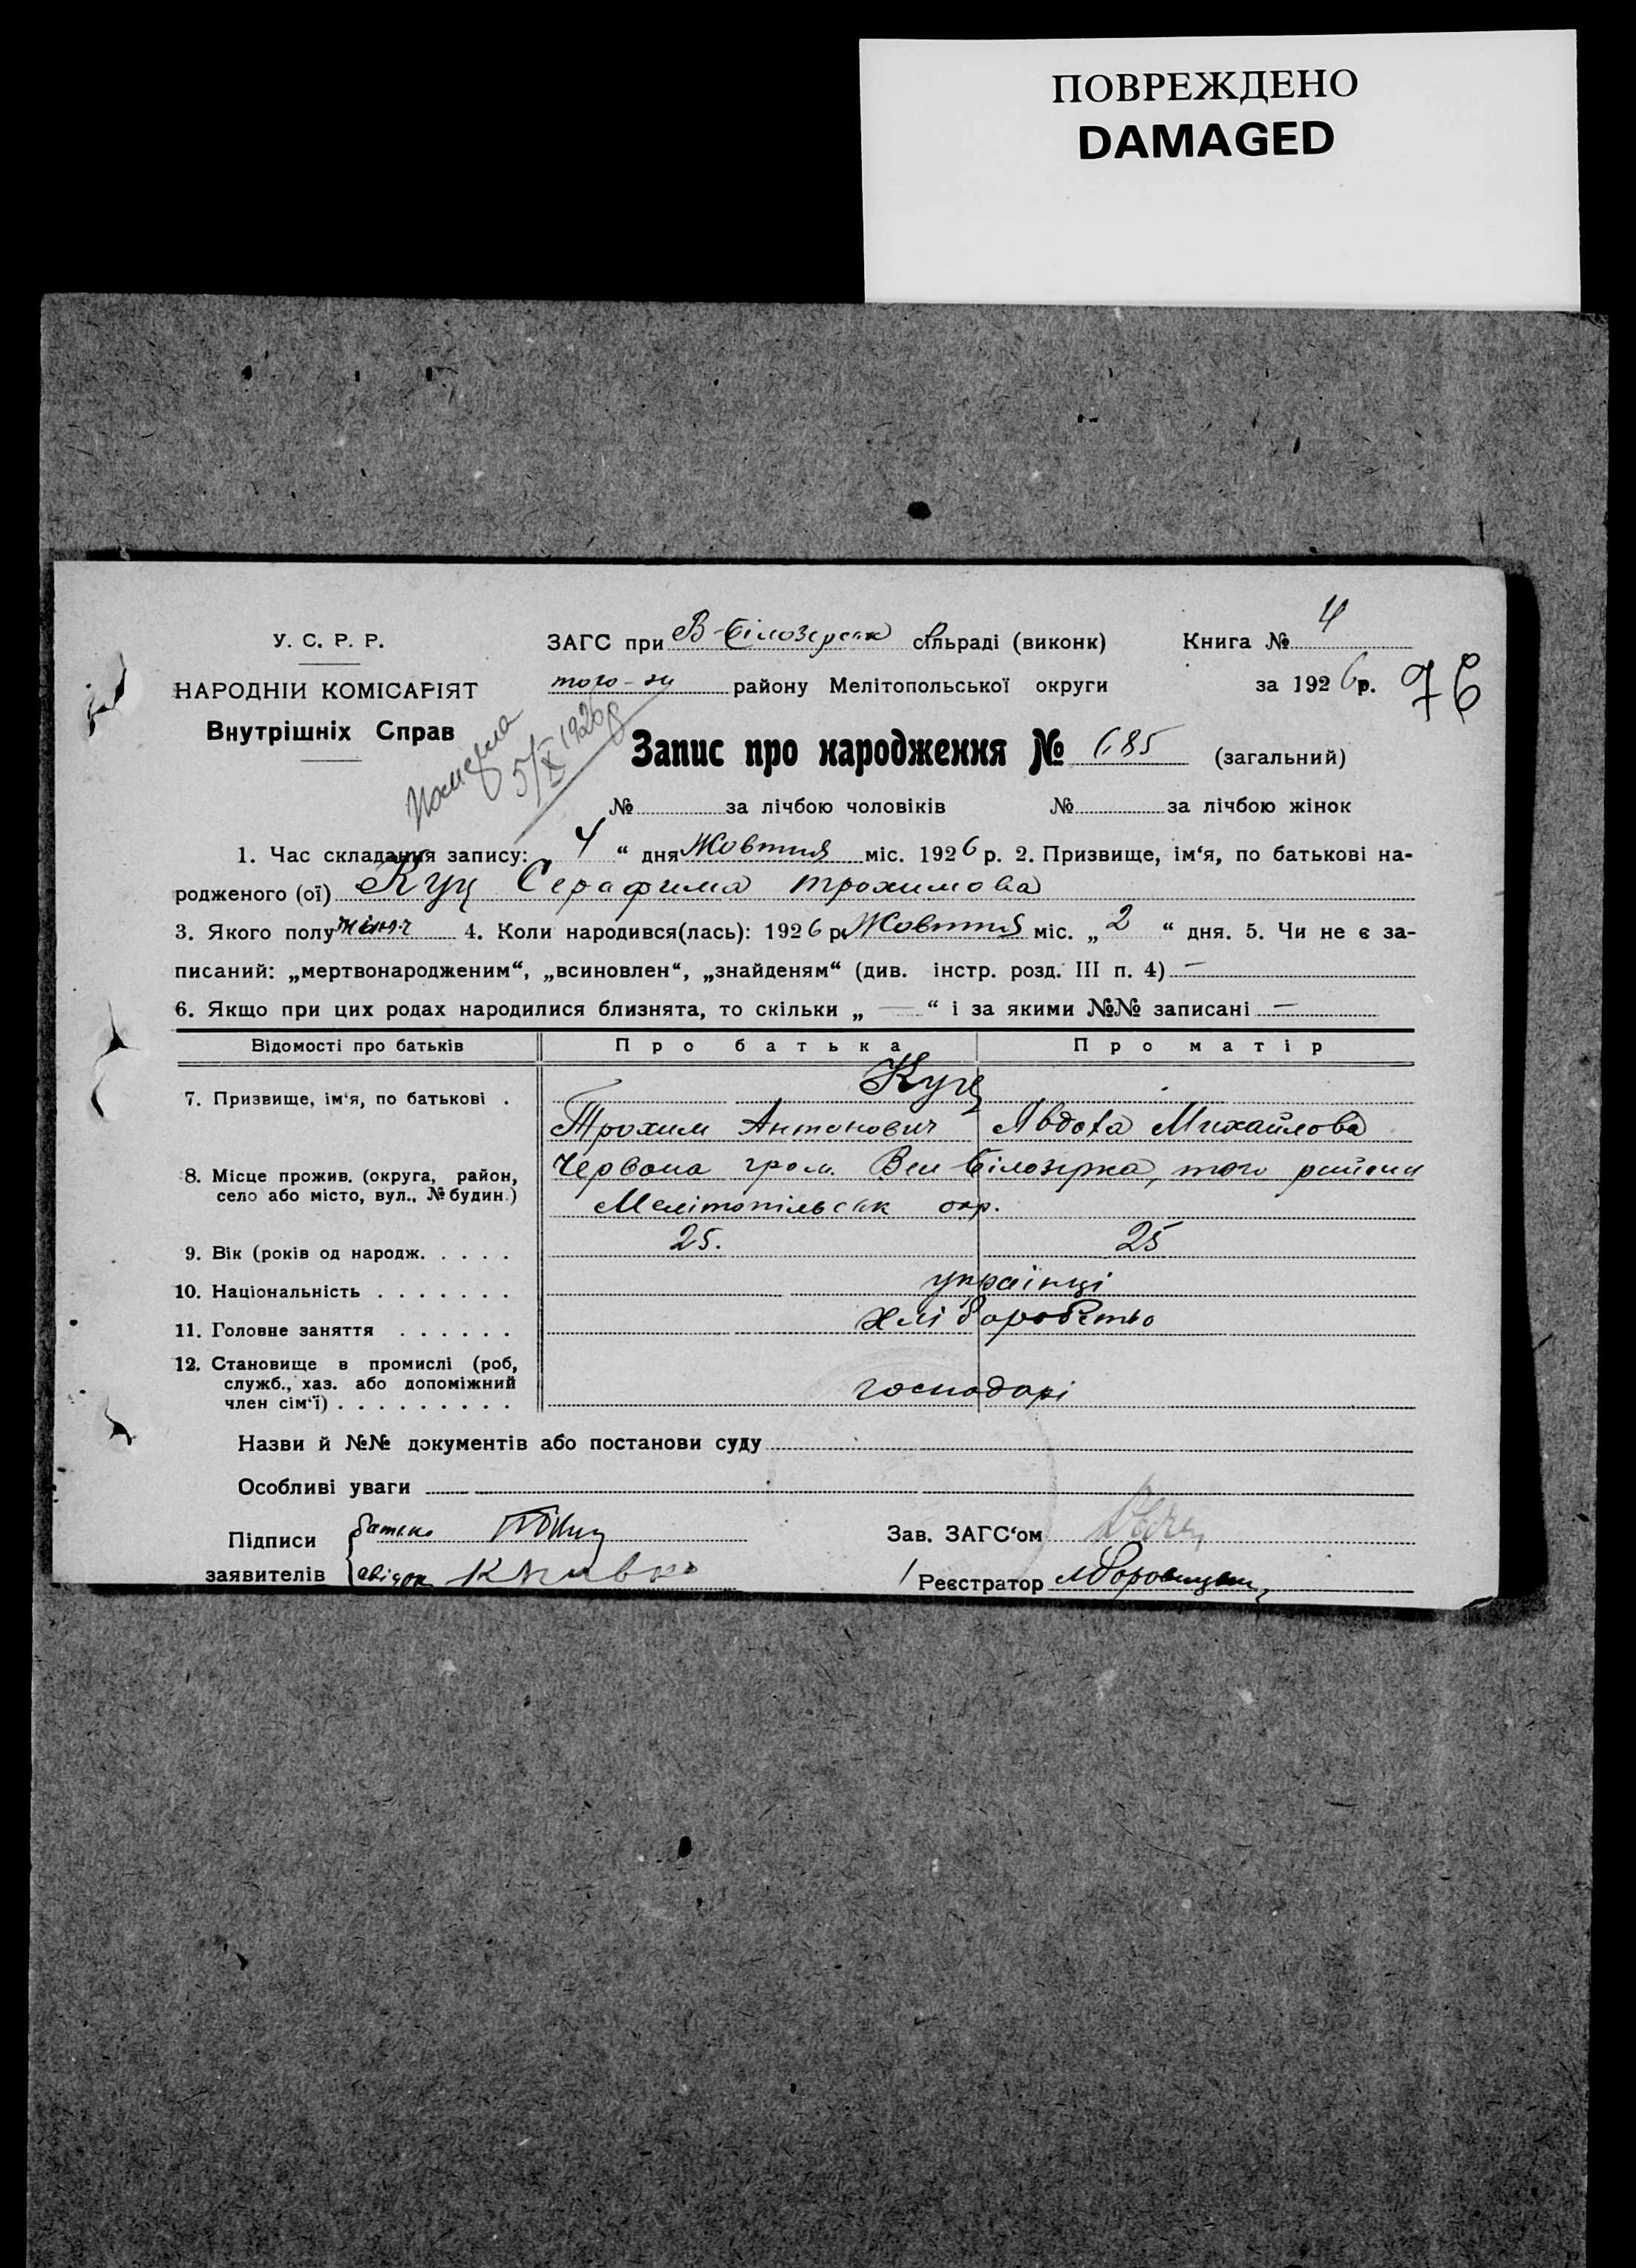 ПОВРЕЖДЕНО
DAMAGED
У. С. Р. Р.
ЗАГС при В-Білозерськ сільраді (виконк)
Книга № 4
НАРОДНІЙ КОМІСАРІЯТ
того-ж району Мелітопольської округи
за 1926 р. 76
Внутрішніх Справ
Померла
5/X 1926 р
Запис про народження № 685 (загальний)
№ за лічбою чоловіків № за лічбою жінок
1. Час складання запису: 4 “ дня Жовтня міс. 1926 р. 2. Призвище, ім‘я, по батькові на-
родженого (ої) Куц Серафима Трохимова
3. Якого полу жіноч 4. Коли народився(лась): 1926 р. Жовтня міс. „ 2 “ дня. 5. Чи не є за-
писаний: „мертвонародженим“, „всиновлен“, „знайденям“ (див. інстр. розд. III п. 4) —
6. Якщо при цих родах народилися близнята, то скільки „ — “ і за якими №№ записані —
Відомості про батьків Про батька Про матір
7. Призвище, ім‘я, по батькові . Куц
Трохим Антонович Явдоха Михайлова
8. Місце прожив. (округа, район, село або місто, вул., № будин.) Червона гром. Вел Білозірка, того району
Мелітопільськ окр.
9. Вік (років од народж. . . . . 25. 25
10. Національність . . . . . . . українці
11. Головне заняття . . . . . . хліборобство
12. Становище в промислі (роб, служб., хаз. або допоміжний член сім‘ї) . . . . . . . . . господарі
Назви й №№ документів або постанови суду
Особливі уваги
Підписи батько
Зав. ЗАГС‘ом
заявителів свідок
Реєстратор